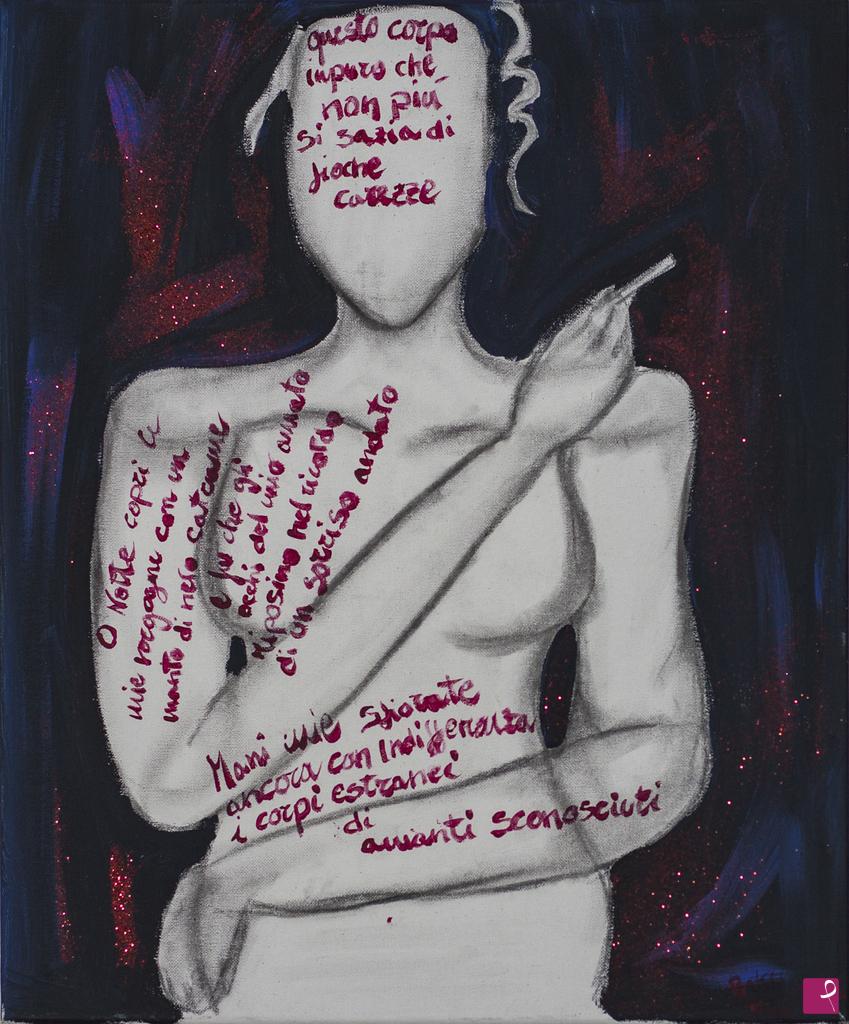 questo corpo
inpuro che
non più
si sazia di
fioche
carezze
O Notte copri le
mie vergogne con un
manto di nero catrame
e fu che gli
occhi del mio amato
riposino nel ricordo
di un sorriso andato
Mani mie sfiorate
ancora con Indifferenza
i corpi estranei
di
amanti sconosciuti